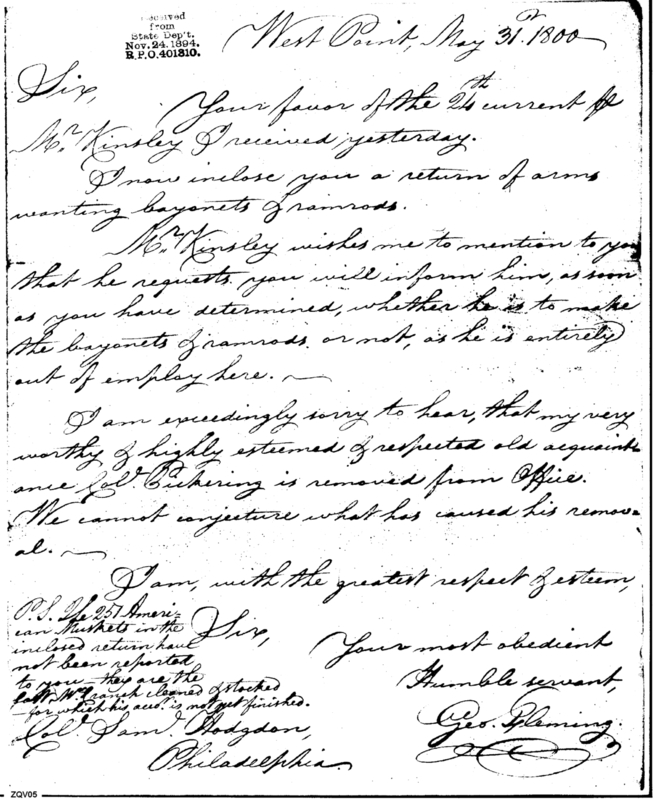 Received
from
State Dep't.
Nov. 24. 1894.
R.P.O. 401310.
West Point, May 31st. 1800
Sir,
Your favor of the 24th current
Mr. Kinsley I received yesterday.
I now inclose you a return of arms
wanting bayonets & ramrods.
Mr. Kinsley wishes me to mention to you
that he requests you will inform him, as soon
as you have determined, whether he is to make
the bayonets & ramrods or not, as he is entirely
out of employ here.
I am exceedingly sorry to hear, that my very
worthy & highly esteemed & respected old acquaint-
ance Col. Pickering is removed from Office.
We cannot conjecture what has caused his remov-
al.
I am, with the greatest respect & esteem,
Sir,
Your most obedient
Humble servant,
Geo. Fleming.
P.S. The 257 Ameri-
can Muskets in the
inclosed return have
not been reported
to you — they are the
last Mr. cleaned & stocked
— for which his acco. is not yet finished.
Col. Saml. Hodgdon,
Philadelphia.
ZQV05